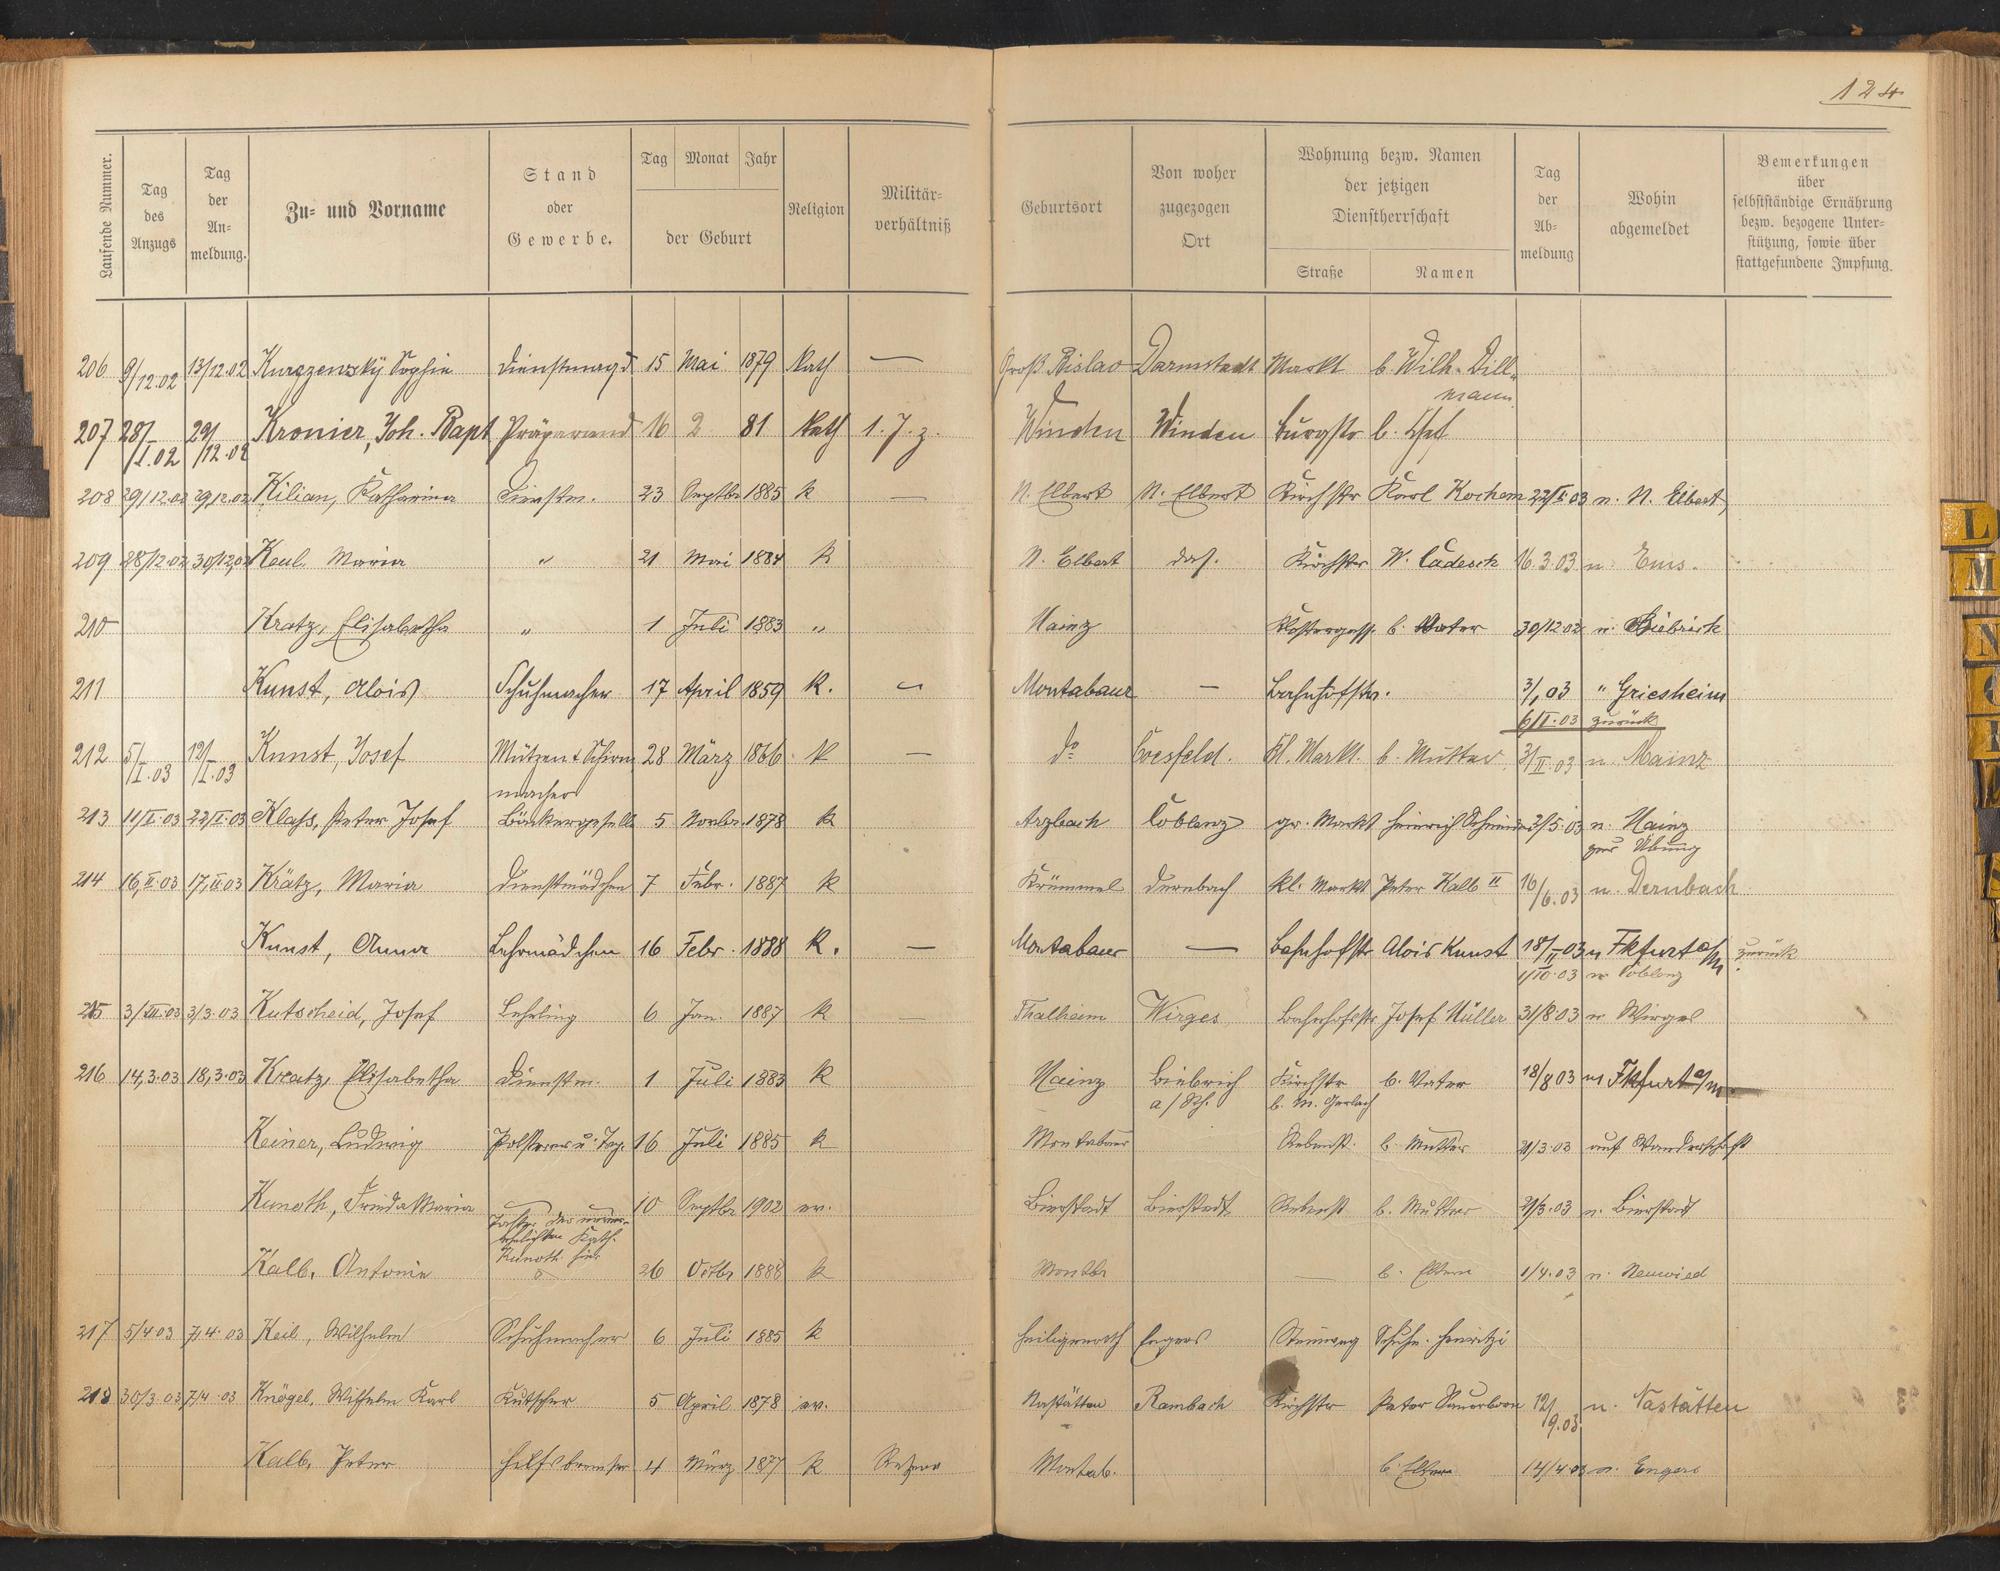 124
Laufende Nummer. Tag des Anzugs Tag der An-meldung. Zu- und Vorname Stand oder Gewerbe. Tag Monat Jahr der Geburt Religion Militär-verhältniß Geburtsort Von woher zugezogen Ort Wohnung bezw. Namen der jetzigen Dienstherrschaft Straße Namen Tag der Ab-meldung Wohin abgemeldet Bemerkungen über selbstständige Ernährung bezw. bezogene Unter-stützung, sowie über stattgefundene Impfung.
206 9/12.02 13/12.02 Sophie Dienstmagd 15 Mai 1879 Kath — Groß Darmstadt Markt b. Wilh. Dill-
mann
207 28/I.02 29/12.02 Kronier, Joh. Bapt Präparand 16 2 81 Kath 1. J. z. Winden Winden Burgstr b.
208 29/12.02 29/12.02 Kilian, Katharina Dienstm. 23 Septbr 1885 k — N. Elbert N. Elbert Kirchstr Karl Kochem 22/II.03 n. N. Elbert
209 28/12.02 30/12.02 Keul. Maria " 21 Mai 1884 k N. Elbert das. Kirchstr W. Cadesch 16.3.03 n. Ems.
210 Kratz, Elisabetha " 1 Juli 1883 " Mainz Klostergasse b. Vater 30/12 02 n. Biebrich
211 Kunst, Alois Schuhmacher 17 April 1859 K. — Montabaur — Bahnhofstr. 3/1 03 " Griesheim
6/II.03 zurück
212 5/I.03 12/I.03 Kunst, Josef Mützen & Schirm 28 März 1866 k — do Coesfeld. Kl. Markt. b. Mutter 3/II.03 n. Mainz
macher
213 11/I.03 22/I.03 Klaß, Peter Josef Bäckergeselle 5 Novbr. 1878 k Arzbach Coblenz gr. Markt Heinrich 2/5.03 n. Mainz
zur Übung
214 16,II.03 17,II.03 Krätz, Maria Dienstmädchen 7 Febr. 1887 k Krümmel Dernbach kl. Markt Peter Kalb II 16/6.03 n. Dernbach
Kunst, Anna Lehrmädchen 16 Febr. 1888 K. — Montabaur — Bahnhofstr Alois Kunst 18/II 03 n Fkfurt a/M zurück
n Coblenz
215 3/III.03 3/3.03 Kutscheid, Josef Lehrling 6 Jan. 1887 k — Thalheim Wirges Bahnhofstr Josef Müller 31/8.03 n. Wirges
216 14,3.03 18,3.03 Kratz, Elisabetha Dienstm. 1 Juli 1883 k Mainz Biebrich Kirchstr b. Vater 18/8 03 n Fkfurt a/m
a/Rh. b. M. Gerlach
Keiner, Ludwig Polsterer u. Tap. 16 Juli 1885 k Montabaur Rebenst. b. Mutter 21/3.03 auf Wanderschaft
Kunoth, Frieda Maria 10 Septbr 1902 ev. Bierstadt Bierstadt Rebenst b. Mutter 21/3.03 n. Bierstadt
Tochter der unver-
ehelichten Kath.
Kunoth hier
Kalb, Antonie 26 Octbr 1888 k Montbr — b. Eltern 1/4.03 n. Neuwied
217 5/4 03 7/4.03 Keil, Wilhelm Schuhmacher 6 Juli 1885 k Heiligenroth Engers Steinweg Schuhm. Henritzi
218 30/3.03 7/4.03 Knögel, Wilhelm Karl Kutscher 5 April 1878 ev. Nastätten Rambach Kirchstr Peter Sauerborn 12/9.03 n. Nastätten
Kalb, Peter Hilfsbremser 4 März 1877 k Reserve Montab. b. Eltern 14/4 03 n. Engers
L
M
N
O